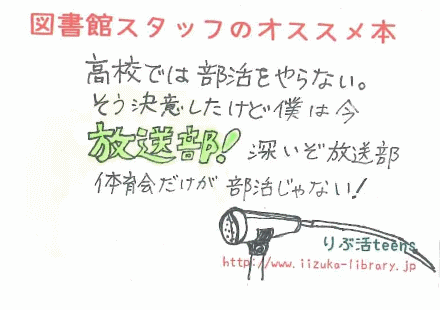 図書館スタッフのオススメ本
高校では部活をやらない。
そう決意したけど僕は今
放送部！深いぞ放送部
体育会だけが部活じゃない！
りぶ活teens
http://www.iizuka-library.jp